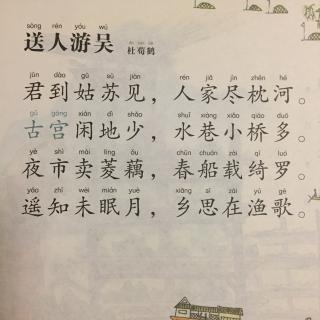 sòng rén yóu wú
送人游吴
dù xún hè
杜荀鹤
jūn dào gū sū jiàn rén jiā jìn zhěn hé
君到姑苏见，人家尽枕河。
gǔ gōng xián dì shǎo shuǐ xiàng xiǎo qiáo duō
古宫闲地少，水巷小桥多。
yè shì mài líng ǒu chūn chuán zài qǐ luó
夜市卖菱藕，春船载绮罗。
yáo zhī wèi mián yuè xiāng sī zài yú gē
遥知未眠月，乡思在渔歌。